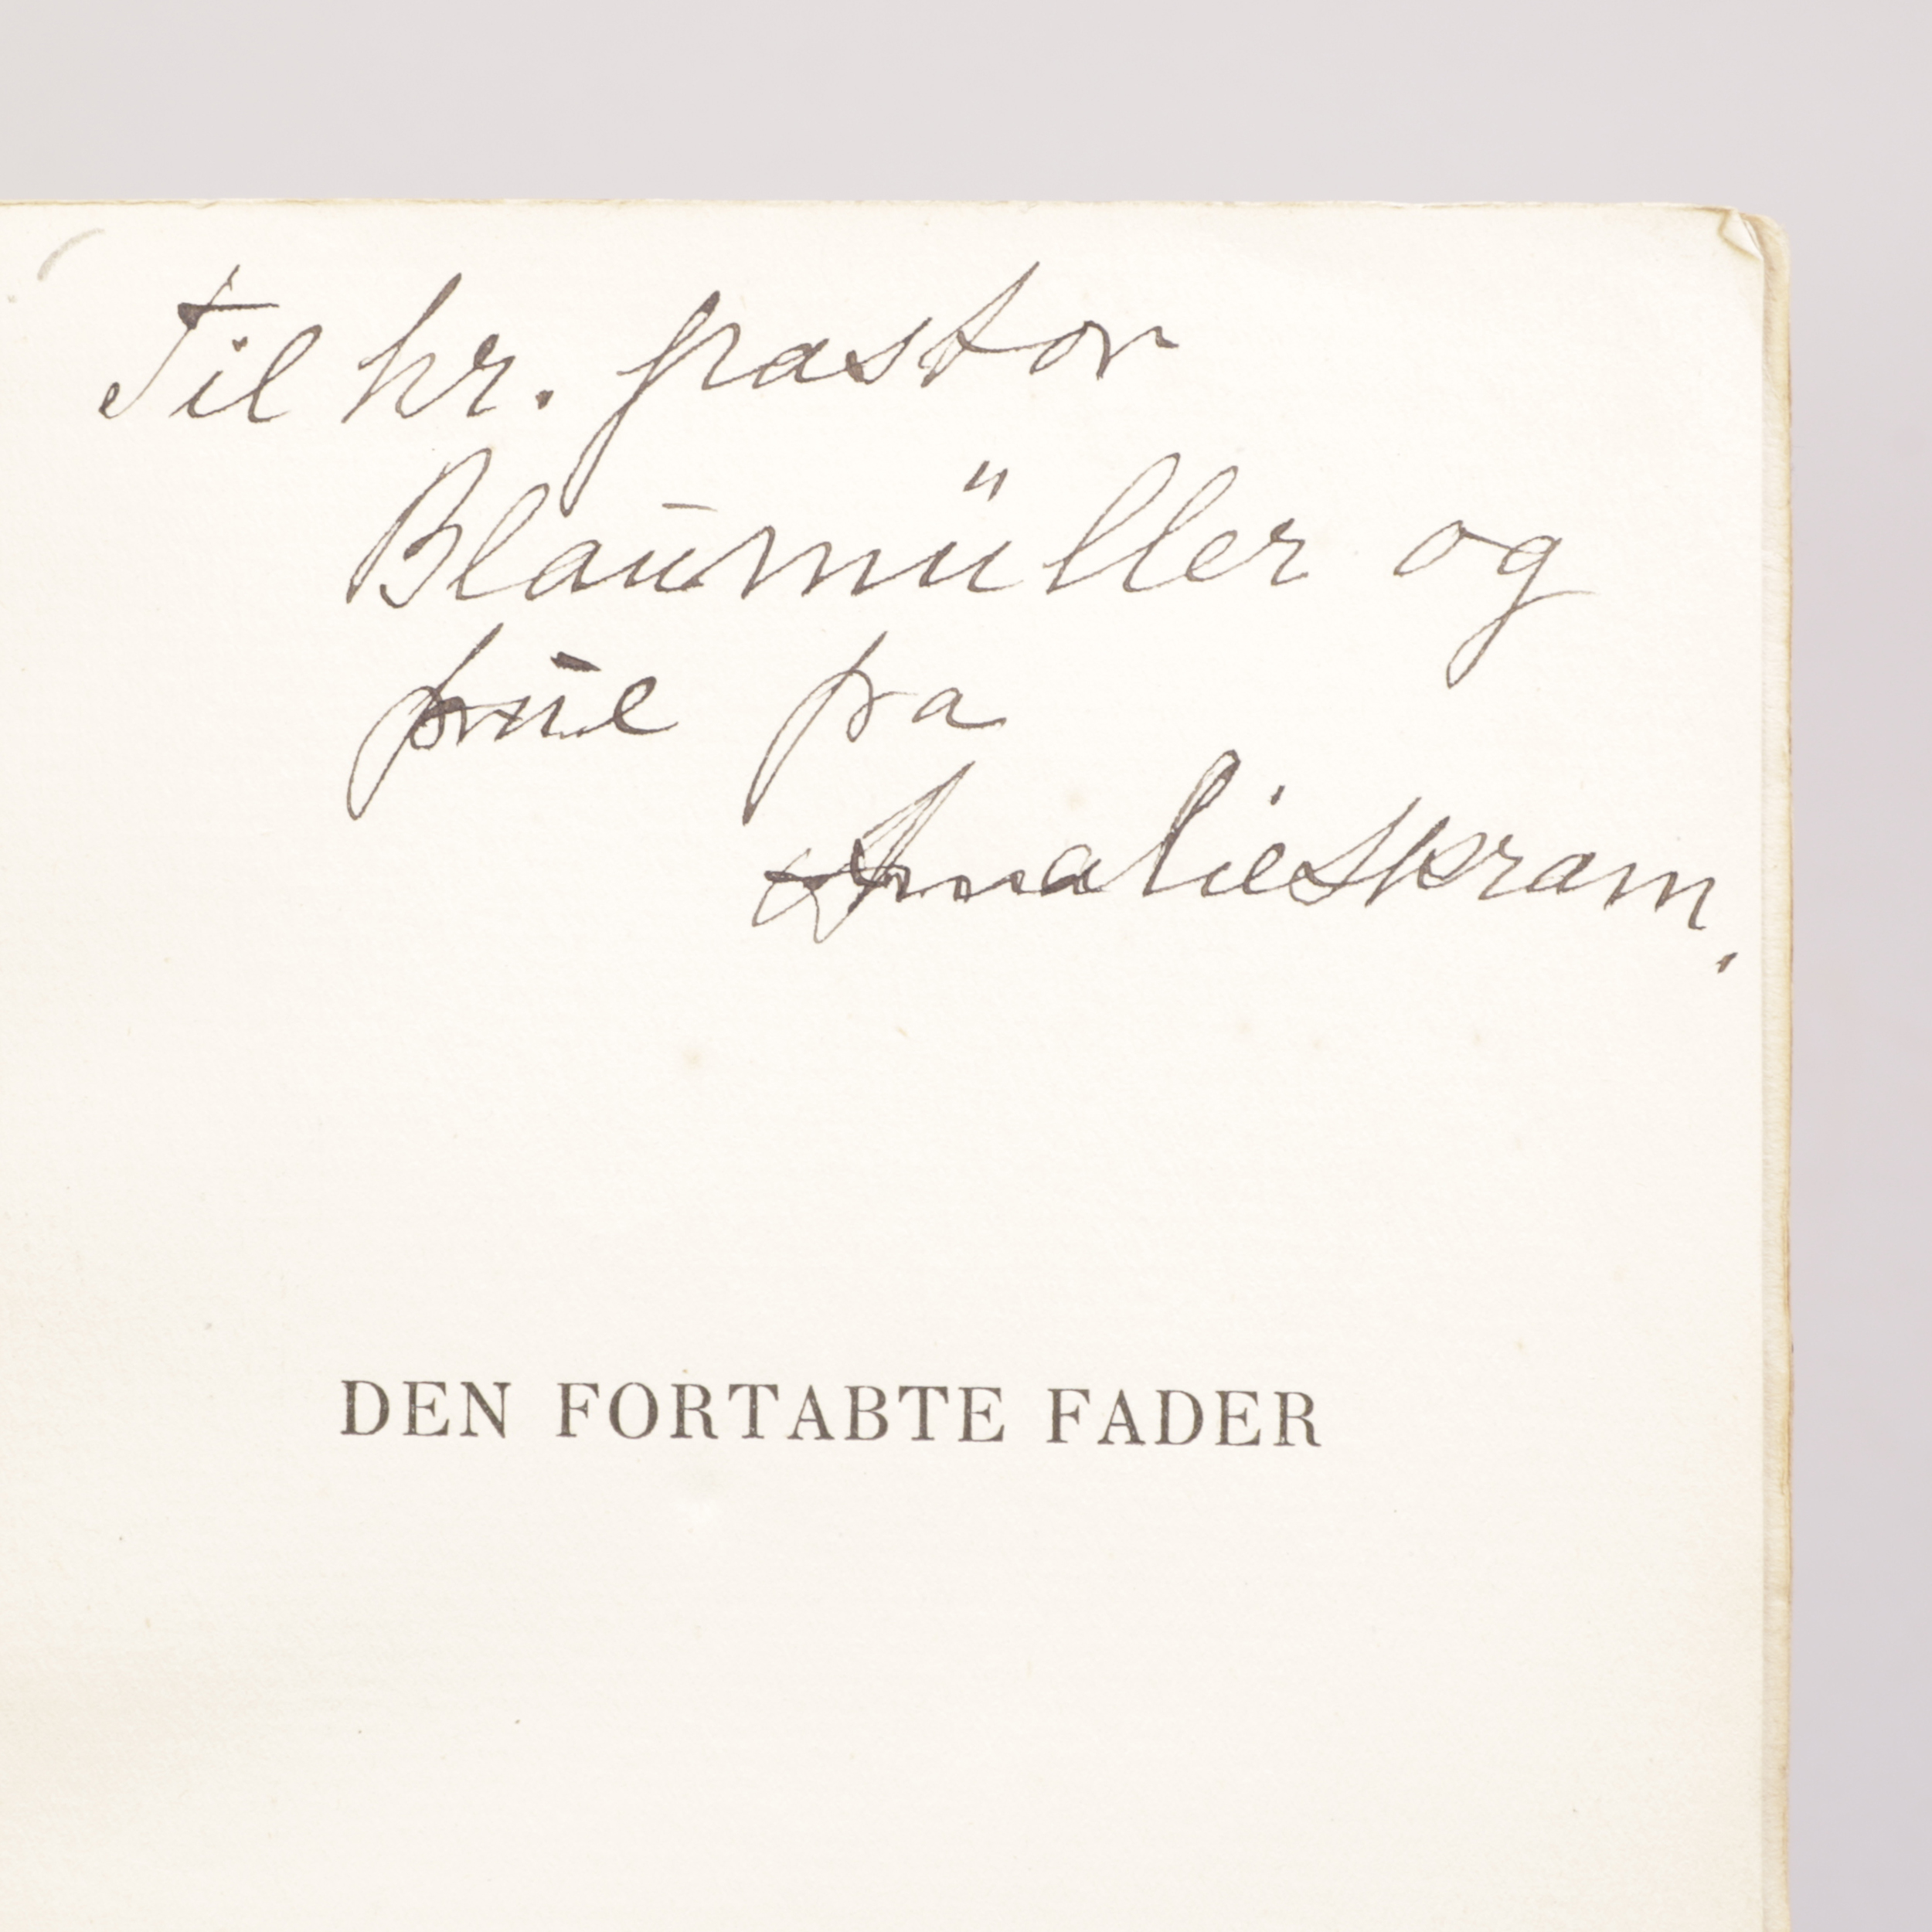 Til hr. pastor
Blaumüller og
frue fra
Amalie Skram.
DEN FORTABTE FADER